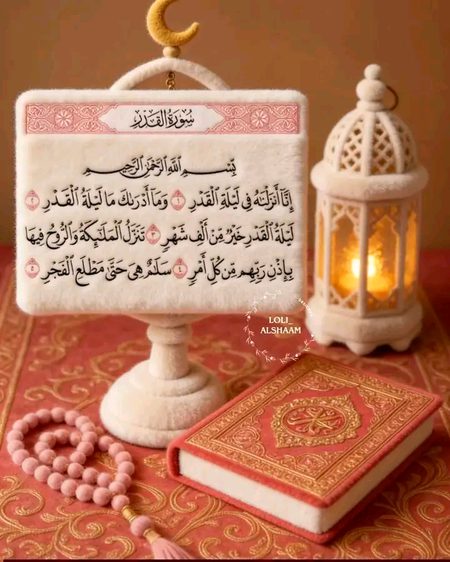 سُورَةُ القَدْرِ
بِسْمِ اللَّهِ الرَّحْمَٰنِ الرَّحِيمِ
إِنَّا أَنزَلْنَاهُ فِي لَيْلَةِ الْقَدْرِ ١ وَمَا أَدْرَاكَ مَا لَيْلَةُ الْقَدْرِ ٢
لَيْلَةُ الْقَدْرِ خَيْرٌ مِّنْ أَلْفِ شَهْرٍ ٣ تَنَزَّلُ الْمَلَائِكَةُ وَالرُّوحُ فِيهَا
بِإِذْنِ رَبِّهِم مِّن كُلِّ أَمْرٍ ٤ سَلَامٌ هِيَ حَتَّىٰ مَطْلَعِ الْفَجْرِ ٥
LOLI_
ALSHAAM